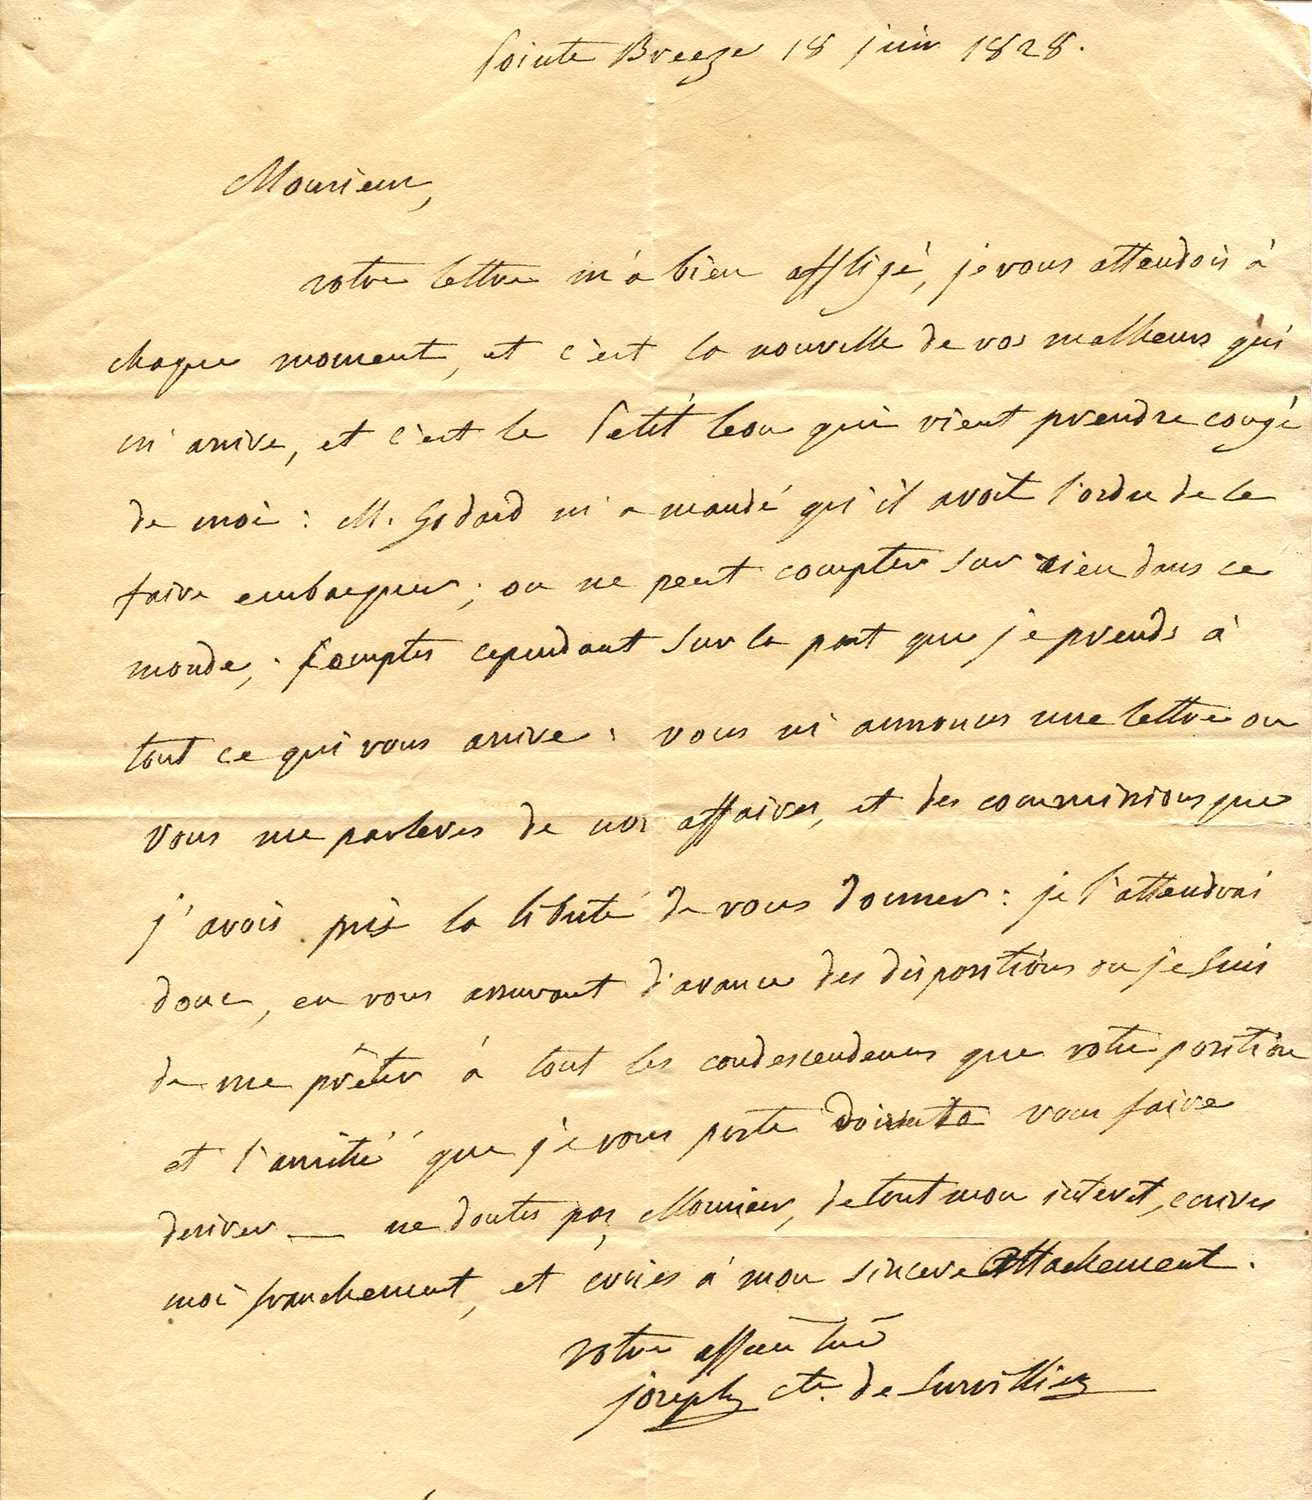 Pointe Breeze 18 juin 1828.
Monsieur,
votre lettre m'a bien affligé, je vous attendois à
chaque moment, et c'est la nouvelle de vos malheurs qui
m'arrive, et c'est le Petit Leon qui vient prendre congé
de moi : M. Godard m'a mandé qu'il avoit l'ordre de le
faire embarquer ; on ne peut compter sur rien dans ce
monde, ; Comptes cependant sur la part que je prends à
tout ce qui vous arrive : vous m'annonces une lettre ou
vous me parleres de nos affaires, et des commissions que
j'avois pris la liberté de vous donner : je l'attendrai
donc, en vous assurant d'avance des dispositions ou je suis
de me prêter à tout les condescendences que votre position
et l'amitié que je vous porte vous faire
deriver — ne doutes pas, Monsieur, de tout mon interet, ecrives
moi franchement, et croies à mon sincere attachement.
votre affectionné
joseph cte. de Survilliers